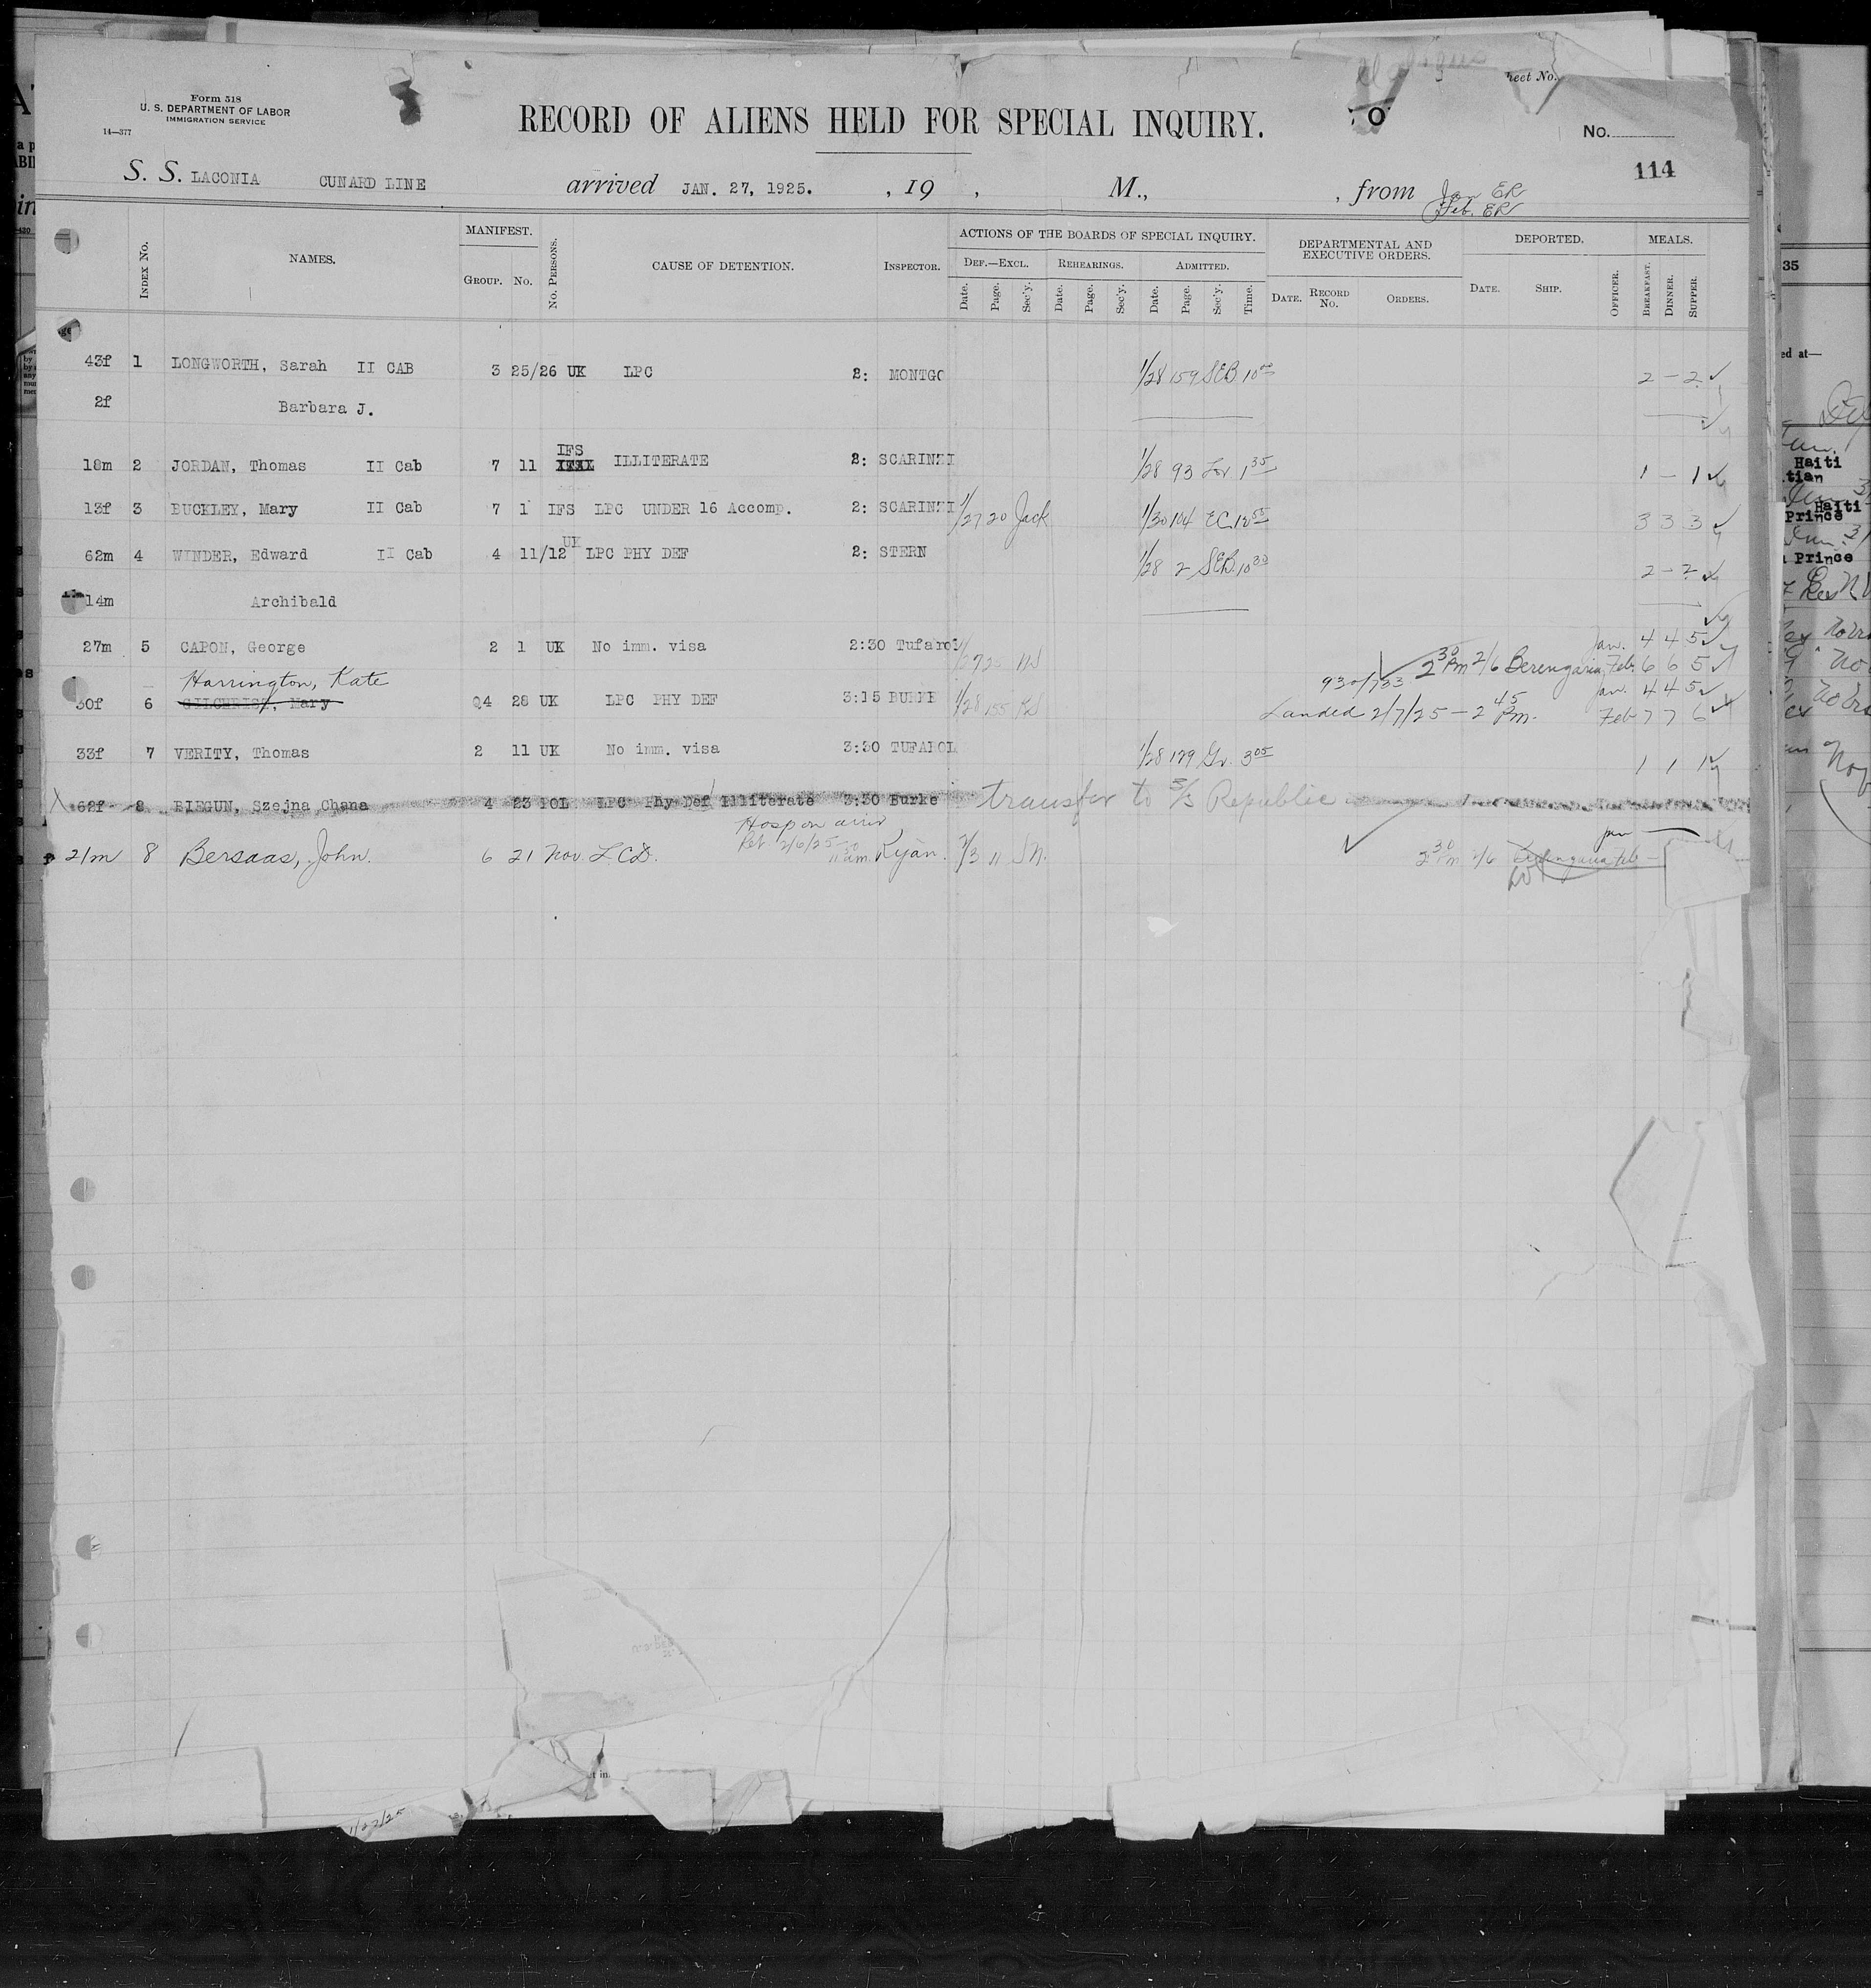 Form 518
U. S. DEPARTMENT OF LABOR
IMMIGRATION SERVICE
14—377
RECORD OF ALIENS HELD FOR SPECIAL INQUIRY.
heet No.
No.
114
S. S. LACONIA CUNARD LINE arrived JAN. 27, 1925. , 19 , M., , from Jan ER
Feb. ER
INDEX No. NAMES. MANIFEST. GROUP. No. No. PERSONS. CAUSE OF DETENTION. INSPECTOR. ACTIONS OF THE BOARDS OF SPECIAL INQUIRY. DEF.—EXCL. Date. Page. Sec'y. REHEARINGS. Date. Page. Sec'y. ADMITTED. Date. Page. Sec'y. Time. DEPARTMENTAL AND EXECUTIVE ORDERS. DATE. RECORD No. ORDERS. DEPORTED. DATE. SHIP. OFFICER. MEALS. BREAKFAST. DINNER. SUPPER.
43f 1 LONGWORTH, Sarah II CAB 3 25/26 UK LPC 2: MONTGO 1/28 159 SEB 10 2 – 2
2f Barbara J.
18m 2 JORDAN, Thomas II Cab 7 11 IFS ILLITERATE 2: SCARINZI 1/28 93 1 35 1 – 1
13f 3 BUCKLEY, Mary II Cab 7 1 IFS LPC UNDER 16 Accomp. 2: SCARINZI 1/27 20 Jack 1/30 104 EC 12 55 3 3 3
62m 4 WINDER, Edward II Cab 4 11/12 UK LPC PHY DEF 2: STERN 1/28 2 SEB 10 30 2 – 2
14m Archibald
27m 5 CAPON, George 2 1 UK No imm. visa 2:30 Tufarol 1/27 25 Jan. 4 4 5
2 30 Pm 2/6 Berengaria Feb. 6 6 5
Harrington, Kate 930/733 Jan. 4 4 5
30f 6 GILCHRIST, Mary Q4 28 UK LPC PHY DEF 3:15 BURKE 1/28 155 Landed 2/7/25 – 2 45 Pm. Feb 7 7 6
33f 7 VERITY, Thomas 2 11 UK No imm. visa 3:30 TUFAROL 1/28 179 Gr. 3 05 1 1 1
62f 8 BIEGUN, Szejna Chana 4 23 POL LPC Phy Def Illiterate 3:30 Burke transfer to S/S Republic
Hosp on arriv
21m 8 Bersaas, John. 6 21 Nov. L.C.D. 2/6/25 Ryan. 2/3 11 2 30 Pm 2/6 Berengaria Feb
Jan
1/27/25
35
ed at—
Haiti
tian
Haiti
Prince
Prince